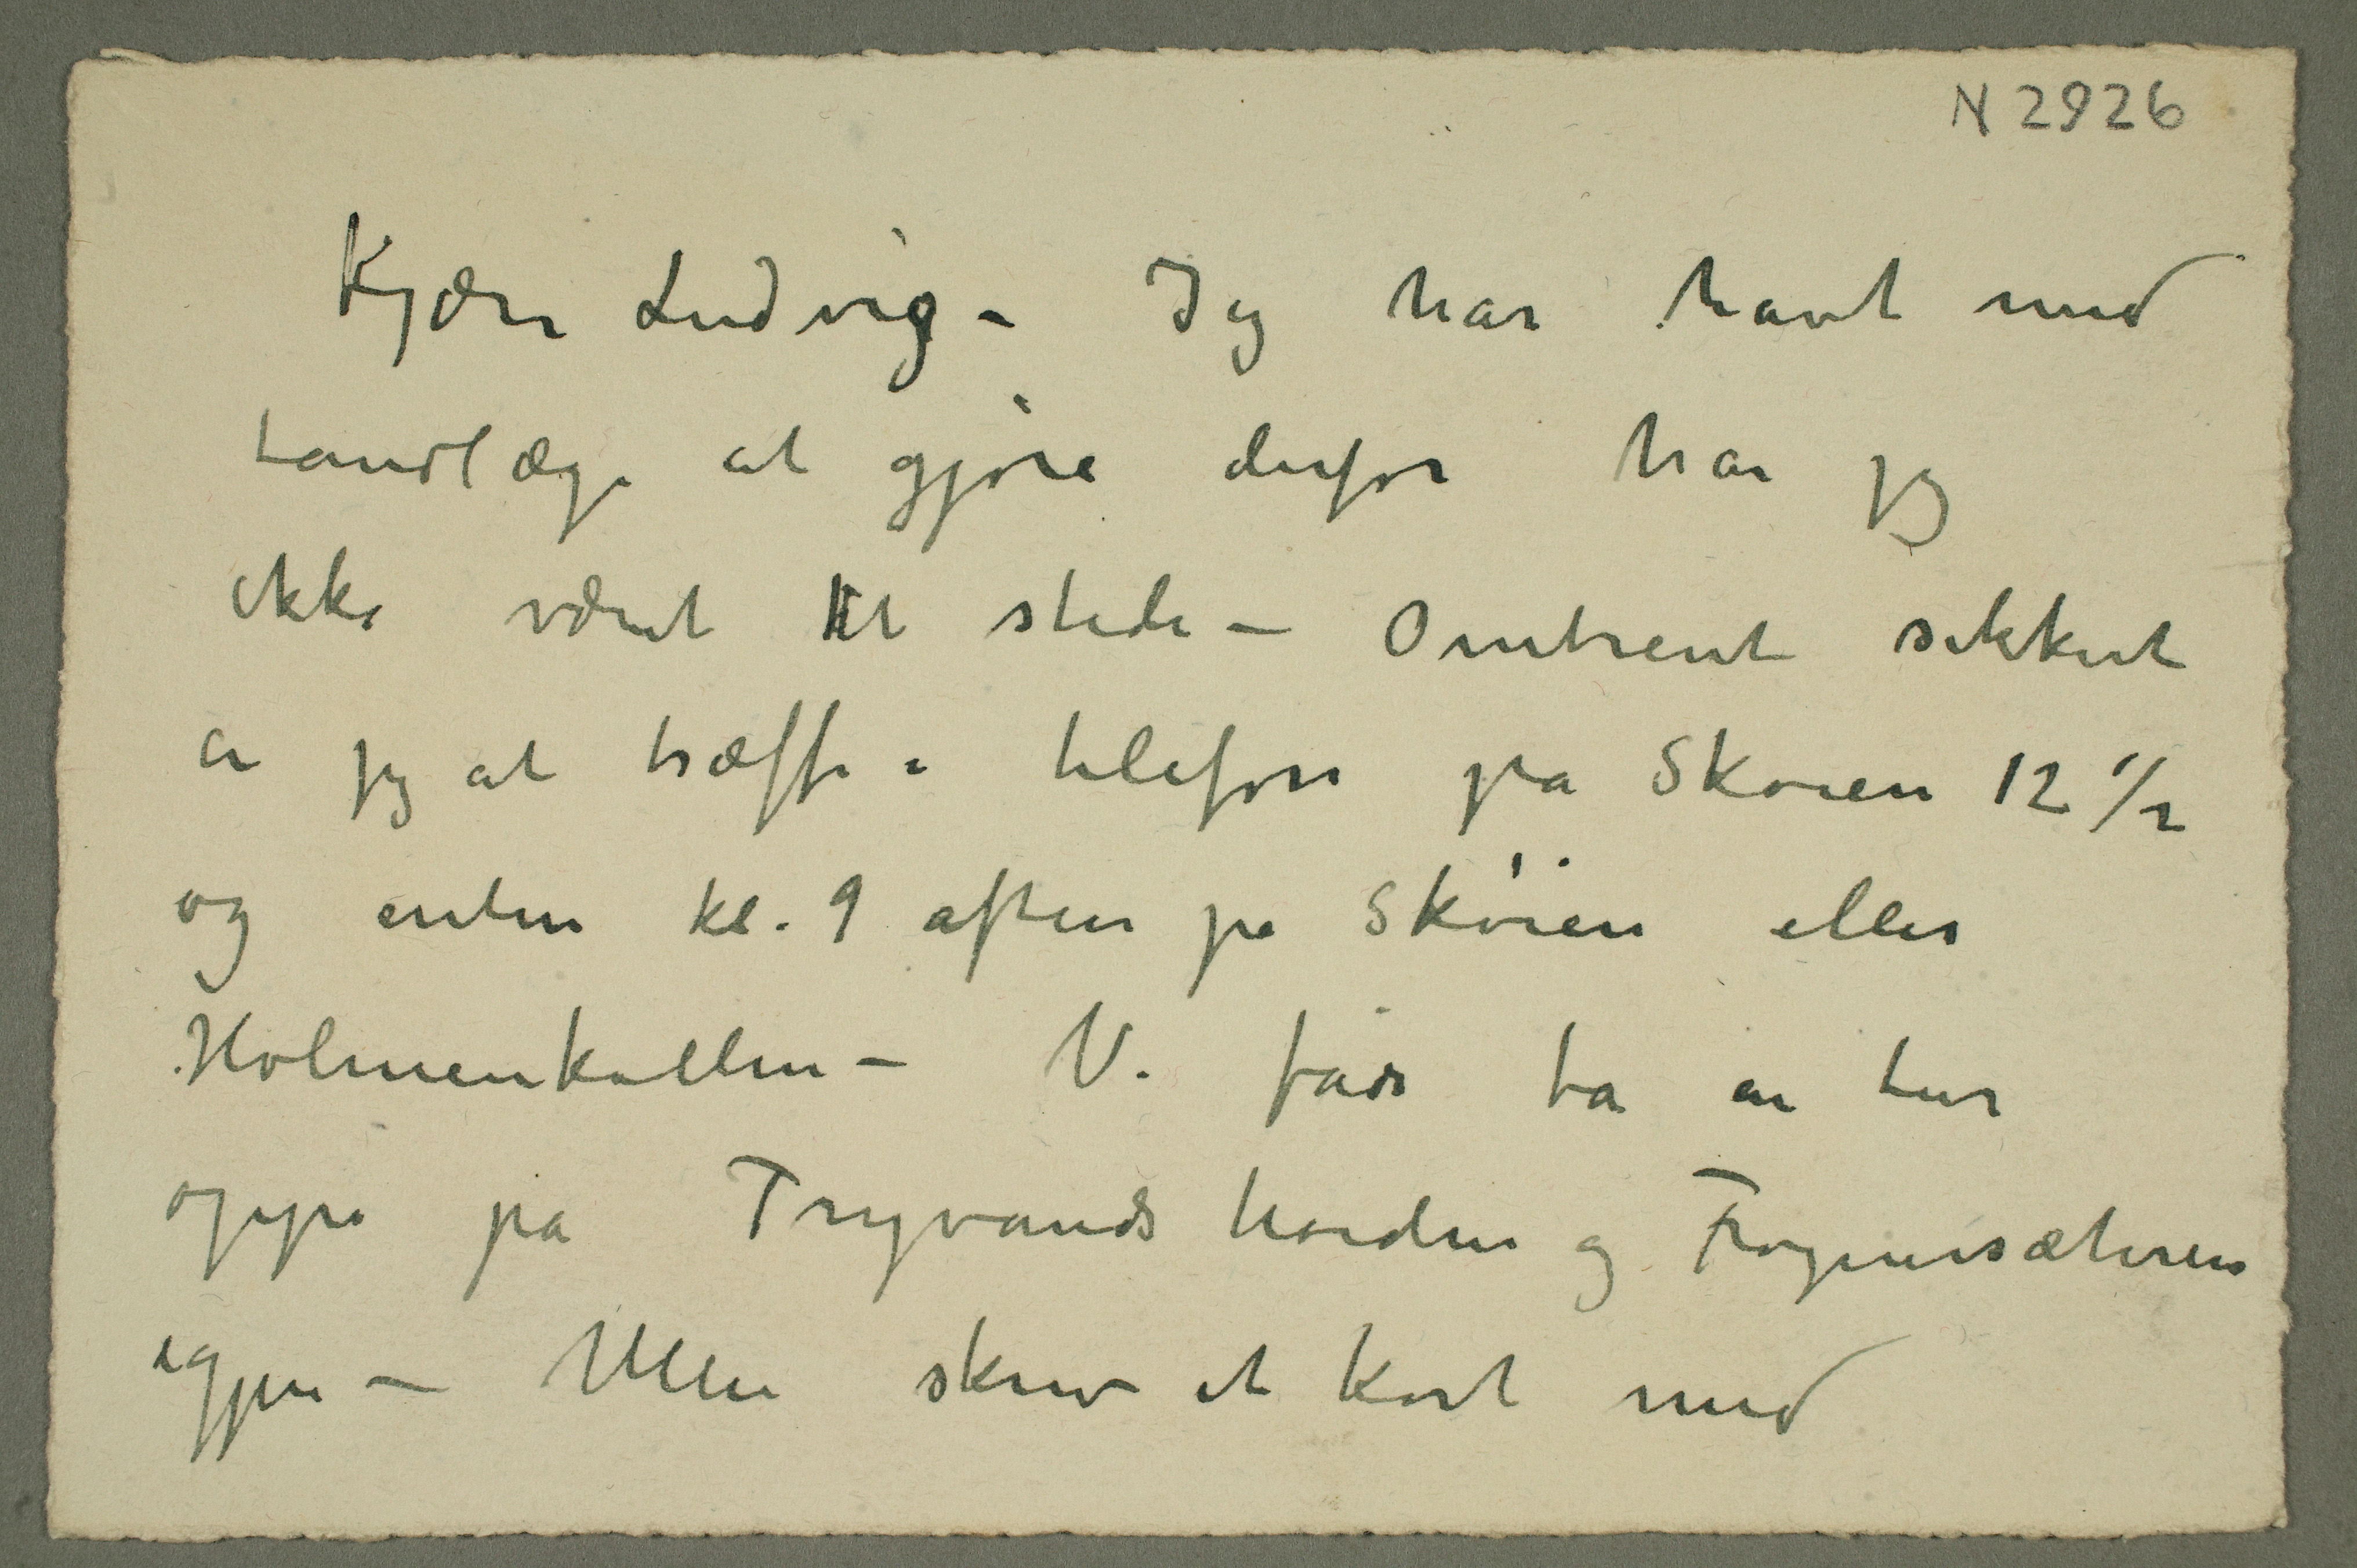 N 2926
Kjære Ludvig – Jeg har havt med
tandlæge at gjøre derfor har jeg
ikke været til stede – Omtrent sikkert
er jeg at træffe i telefon på Skøien 12 1/2
og enten kl. 9 aften på Skøien eller
Holmenkollen – Vi får ta en tur
oppe på Tryvandshøiden og Frognersæteren
igjen – Men skriv et kort med